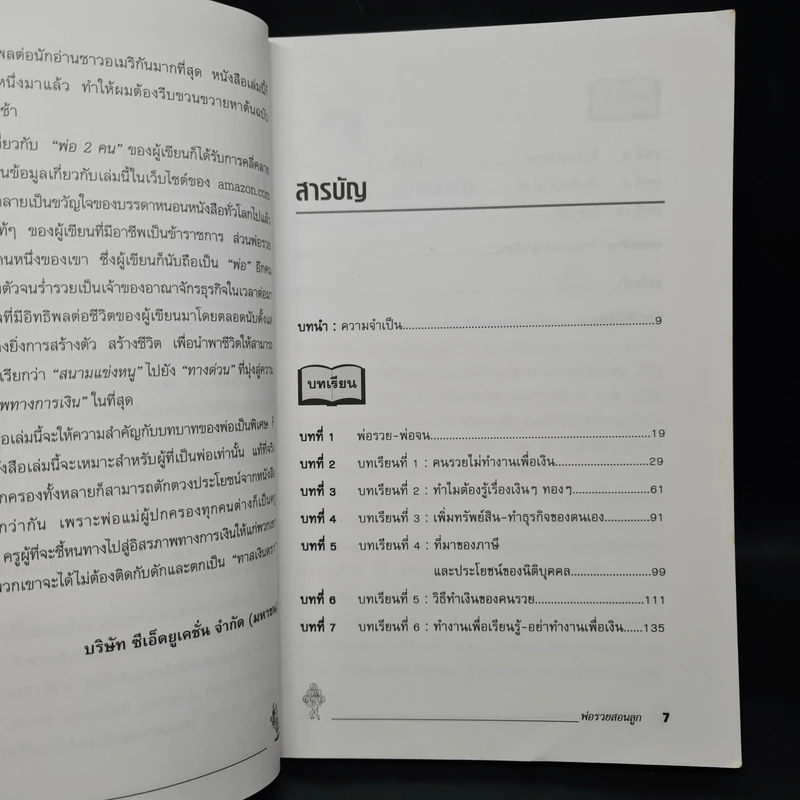 พลต่อนักอ่านชาวอเมริกันมากที่สุด หนังสือเล่มนี้ก็
หนึ่งมาแล้ว ทำให้ผมต้องรีบขวนขวายหาต้นฉบับ
ช้า
กี่ยวกับ “พ่อ 2 คน” ของผู้เขียนก็ได้รับการคลี่คลาย
นข้อมูลเกี่ยวกับเล่มนี้ในเว็บไซต์ของ amazon.com
ลายเป็นขวัญใจของบรรดาหนอนหนังสือทั่วโลกไปแล้ว
ท้ๆ ของผู้เขียนที่มีอาชีพเป็นข้าราชการ ส่วนพ่อรวย
คนหนึ่งของเขา ซึ่งผู้เขียนก็นับถือเป็น “พ่อ” อีกคน
งตัวจนร่ำรวยเป็นเจ้าของอาณาจักรธุรกิจในเวลาต่อมา
ลที่มีอิทธิพลต่อชีวิตของผู้เขียนมาโดยตลอดนับตั้งแต่
างยิ่งการสร้างตัว สร้างชีวิต เพื่อนำพาชีวิตให้สามาร
เรียกว่า “สนามแข่งหนู” ไปยัง “ทางด่วน” ที่มุ่งสู่ความ
าพทางการเงิน” ในที่สุด
อเล่มนี้จะให้ความสำคัญกับบทบาทของพ่อเป็นพิเศษ ก็
งสือเล่มนี้จะเหมาะสำหรับผู้ที่เป็นพ่อเท่านั้น แท้ที่จริง
กครองทั้งหลายก็สามารถตักตวงประโยชน์จากหนังสือ
กว่ากัน เพราะพ่อแม่ผู้ปกครองทุกคนต่างก็เป็นครู
ครูผู้ที่จะชี้หนทางไปสู่อิสรภาพทางการเงินให้แก่พวกเขา
พวกเขาจะได้ไม่ต้องติดกับดักและตกเป็น “ทาสเงินตรา”
บริษัท ซีเอ็ดยูเคชั่น จำกัด (มหาชน)
สารบัญ
บทนำ : ความจำเป็น...............................................................9
บทเรียน
บทที่ 1 พ่อรวย-พ่อจน...............................................................19
บทที่ 2 บทเรียนที่ 1 : คนรวยไม่ทำงานเพื่อเงิน........................29
บทที่ 3 บทเรียนที่ 2 : ทำไมต้องรู้เรื่องเงินๆ ทองๆ...................61
บทที่ 4 บทเรียนที่ 3 : เพิ่มทรัพย์สิน-ทำธุรกิจของตนเอง..........91
บทที่ 5 บทเรียนที่ 4 : ที่มาของภาษี
และประโยชน์ของนิติบุคคล..................99
บทที่ 6 บทเรียนที่ 5 : วิธีทำเงินของคนรวย...........................111
บทที่ 7 บทเรียนที่ 6 : ทำงานเพื่อเรียนรู้-อย่าทำงานเพื่อเงิน......135
พ่อรวยสอนลูก 7